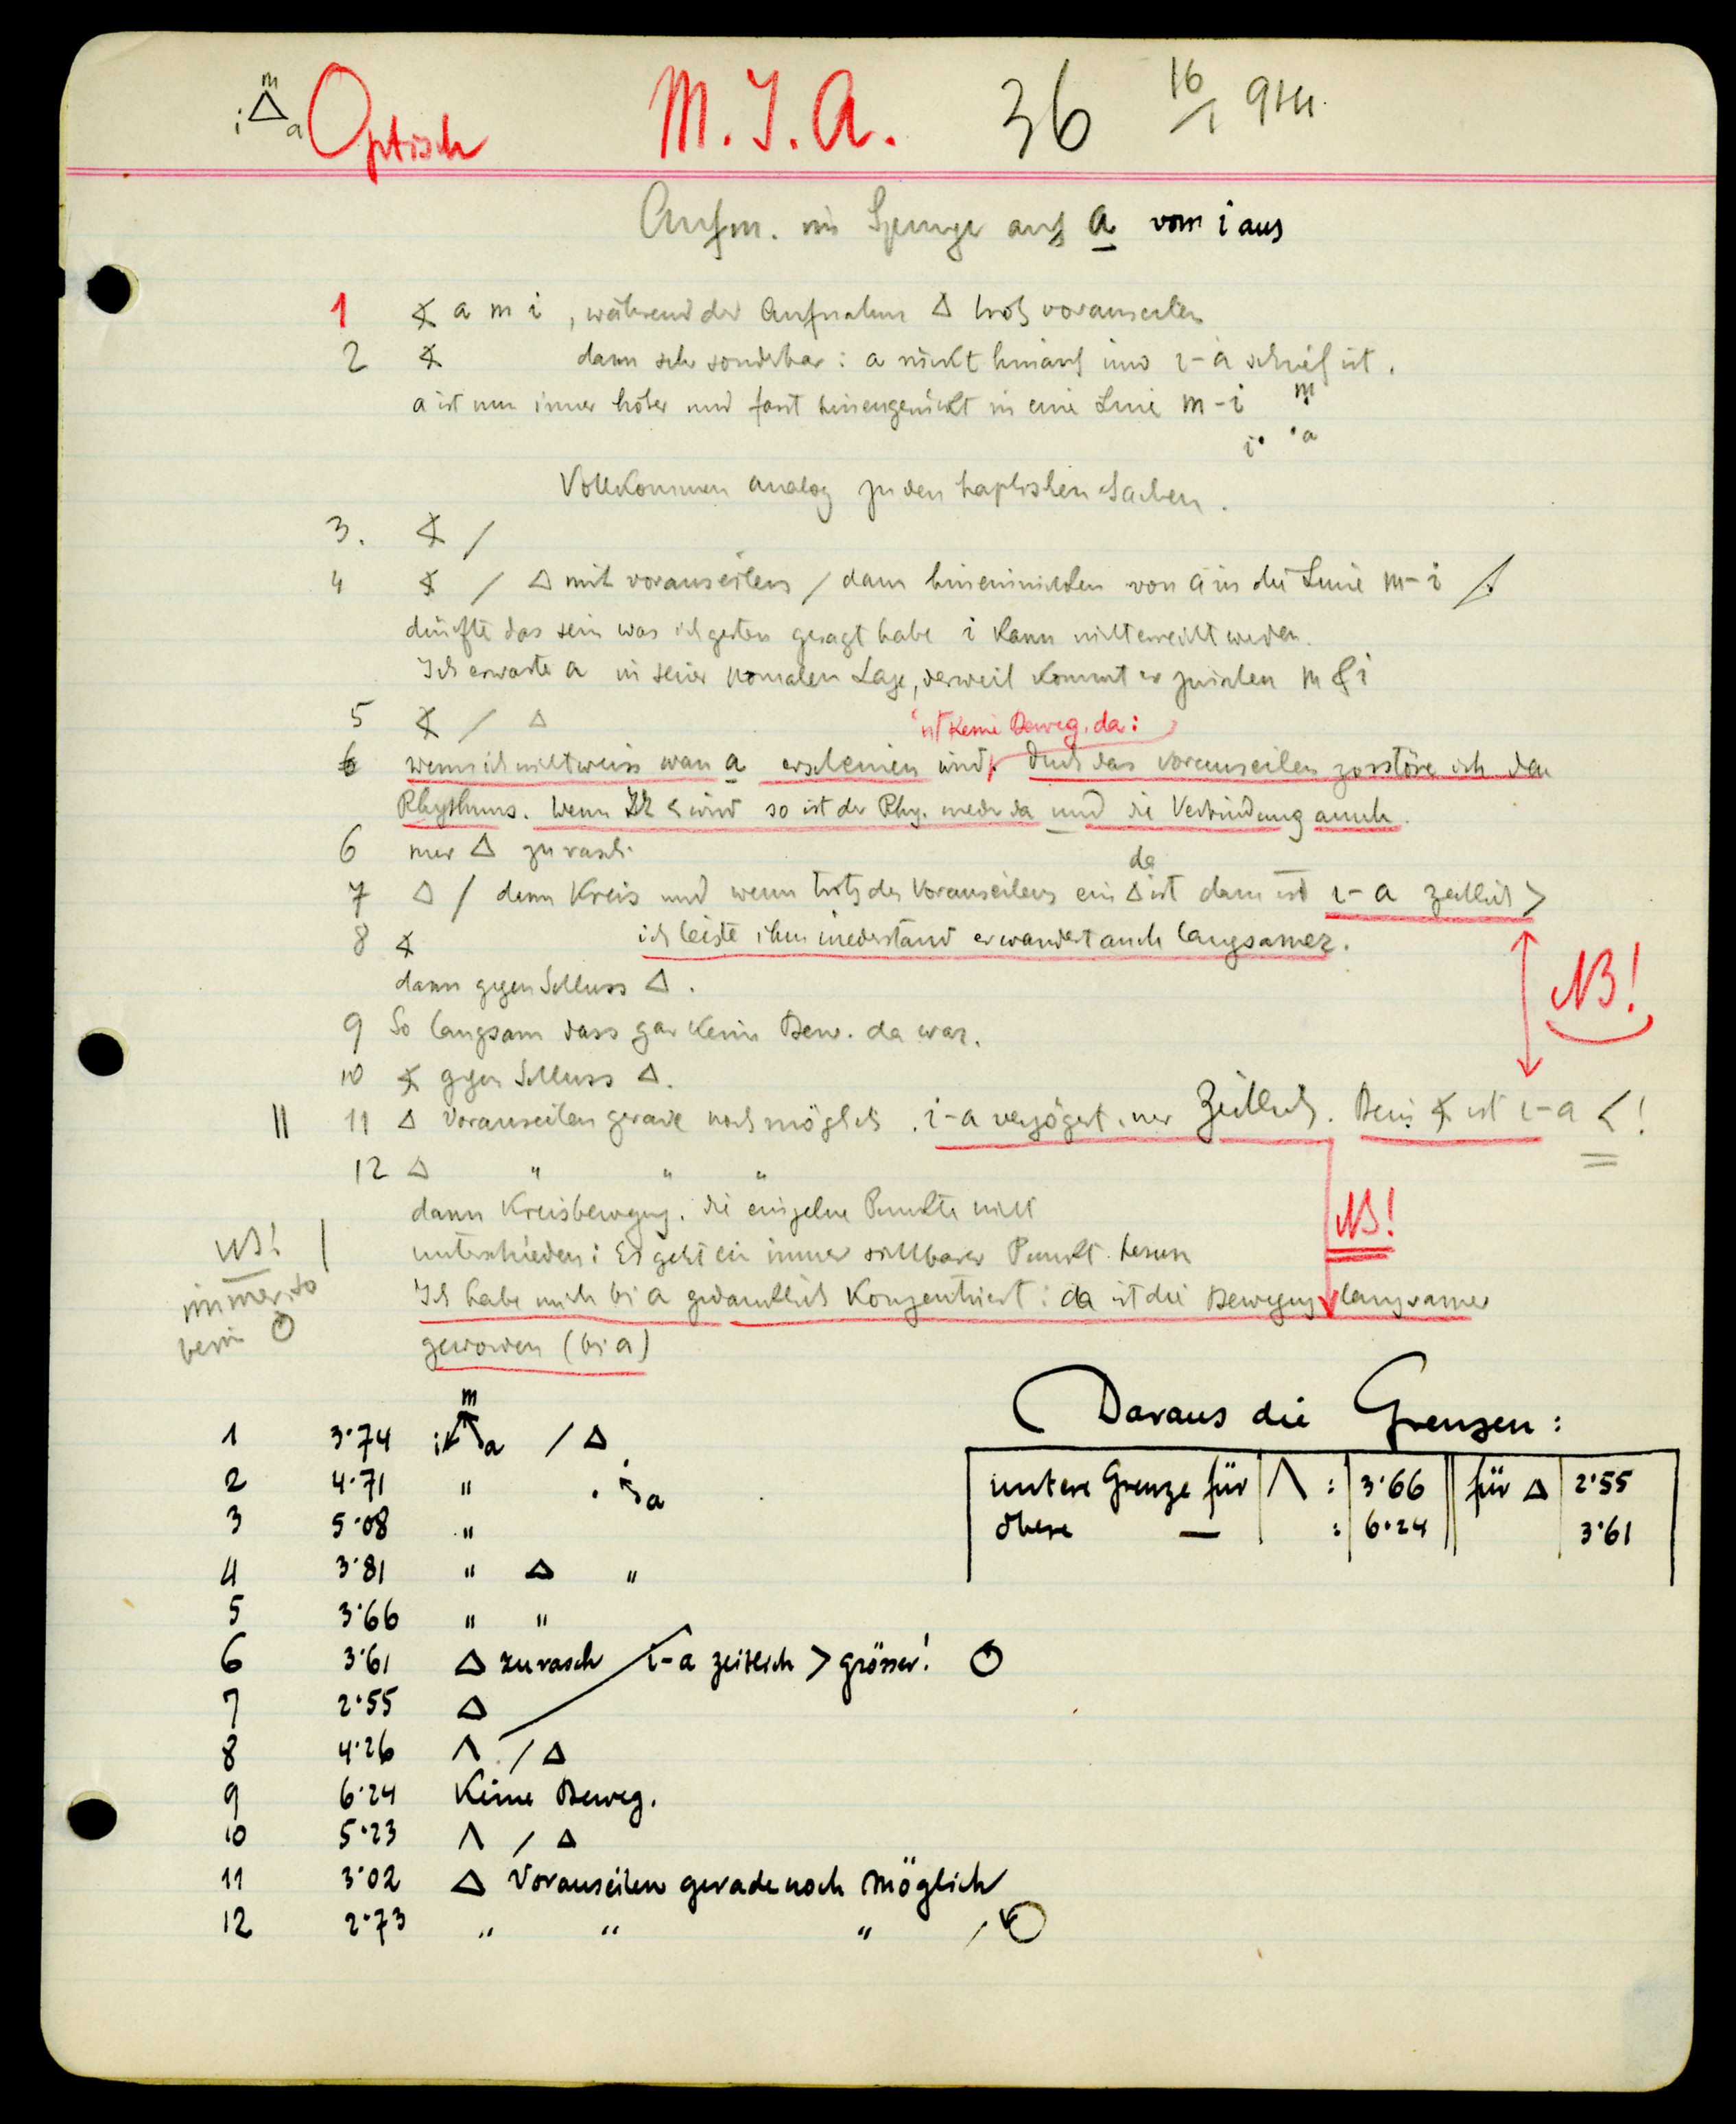 m
i △ a Optisch M. I. A. 36 16/I 9 Uh.
Aufm. im Sprunge auf a vom i aus
1 ∢ a m i , während der Aufnahme △ trotz vorauseilen
2 ∢ dann sehr sonderbar : a rückt hinauf und i-a schief ist.
a ist nun immer höher und fast hineingerückt in eine Linie m-i m
i · · a
Vollkommen analog zu den haptischen Sachen.
3. ∢ /
4 ∢ / △ mit vorauseilen / dann hineinrücken von a in die Linie m-i
dürfte das sein was ich gestern gesagt habe i kann nicht erreicht werden.
Ich erwarte a in seiner normalen Lage, derweil kommt er zwischen m & i
5 ∢ / △
ist keine Beweg. da :
6 wenn ich nicht weiss wan a erscheinen wird. Durch das vorauseilen zerstöre ich den
Rhythmus. Wenn < wird so ist der Rhy. wieder da und die Verbindung auch.
6 nur △ zu rasch.
da
7 △ / dann Kreis und wenn trotz des Vorauseilens ein △ ist dann ist i-a zeitlich >
8 ∢ ich leiste ihm wiederstand er wandert auch langsamer.
dann gegen Schluss △ .
NB!
9 So langsam dass gar keine Bew. da war.
10 ∢ gegen Schluss △.
|| 11 △ Vorauseilen gerade noch möglich . i-a verzögert. nur Zeitlich. Beim ∢ ist i-a < !
12 △ " " "
dann Kreisbewegung. die einzelne Punkte nicht
NB!
unterschieden : Es geht ein immer sichtbarer Punkt herum
NB! |
immer so
beim
Ich habe mich bei a gedanklich konzentriert : da ist die Bewegung langsamer
geworden (bei a)
Daraus die Grenzen :
untere Grenze für Λ : 3·66 für △ 2·55
obere — : 6·24 3·61
m
1 3·74 i a / △
2 4·71 " a
3 5·08 "
4 3·81 " △ "
5 3·66 " "
6 3·61 △ zu rasch i-a zeitlich > grösser!
7 2·55 △
8 4·26 Λ / △
9 6·24 Keine Beweg.
10 5·23 Λ / △
11 3·02 △ Vorauseilen gerade noch möglich
12 2·73 " " " /